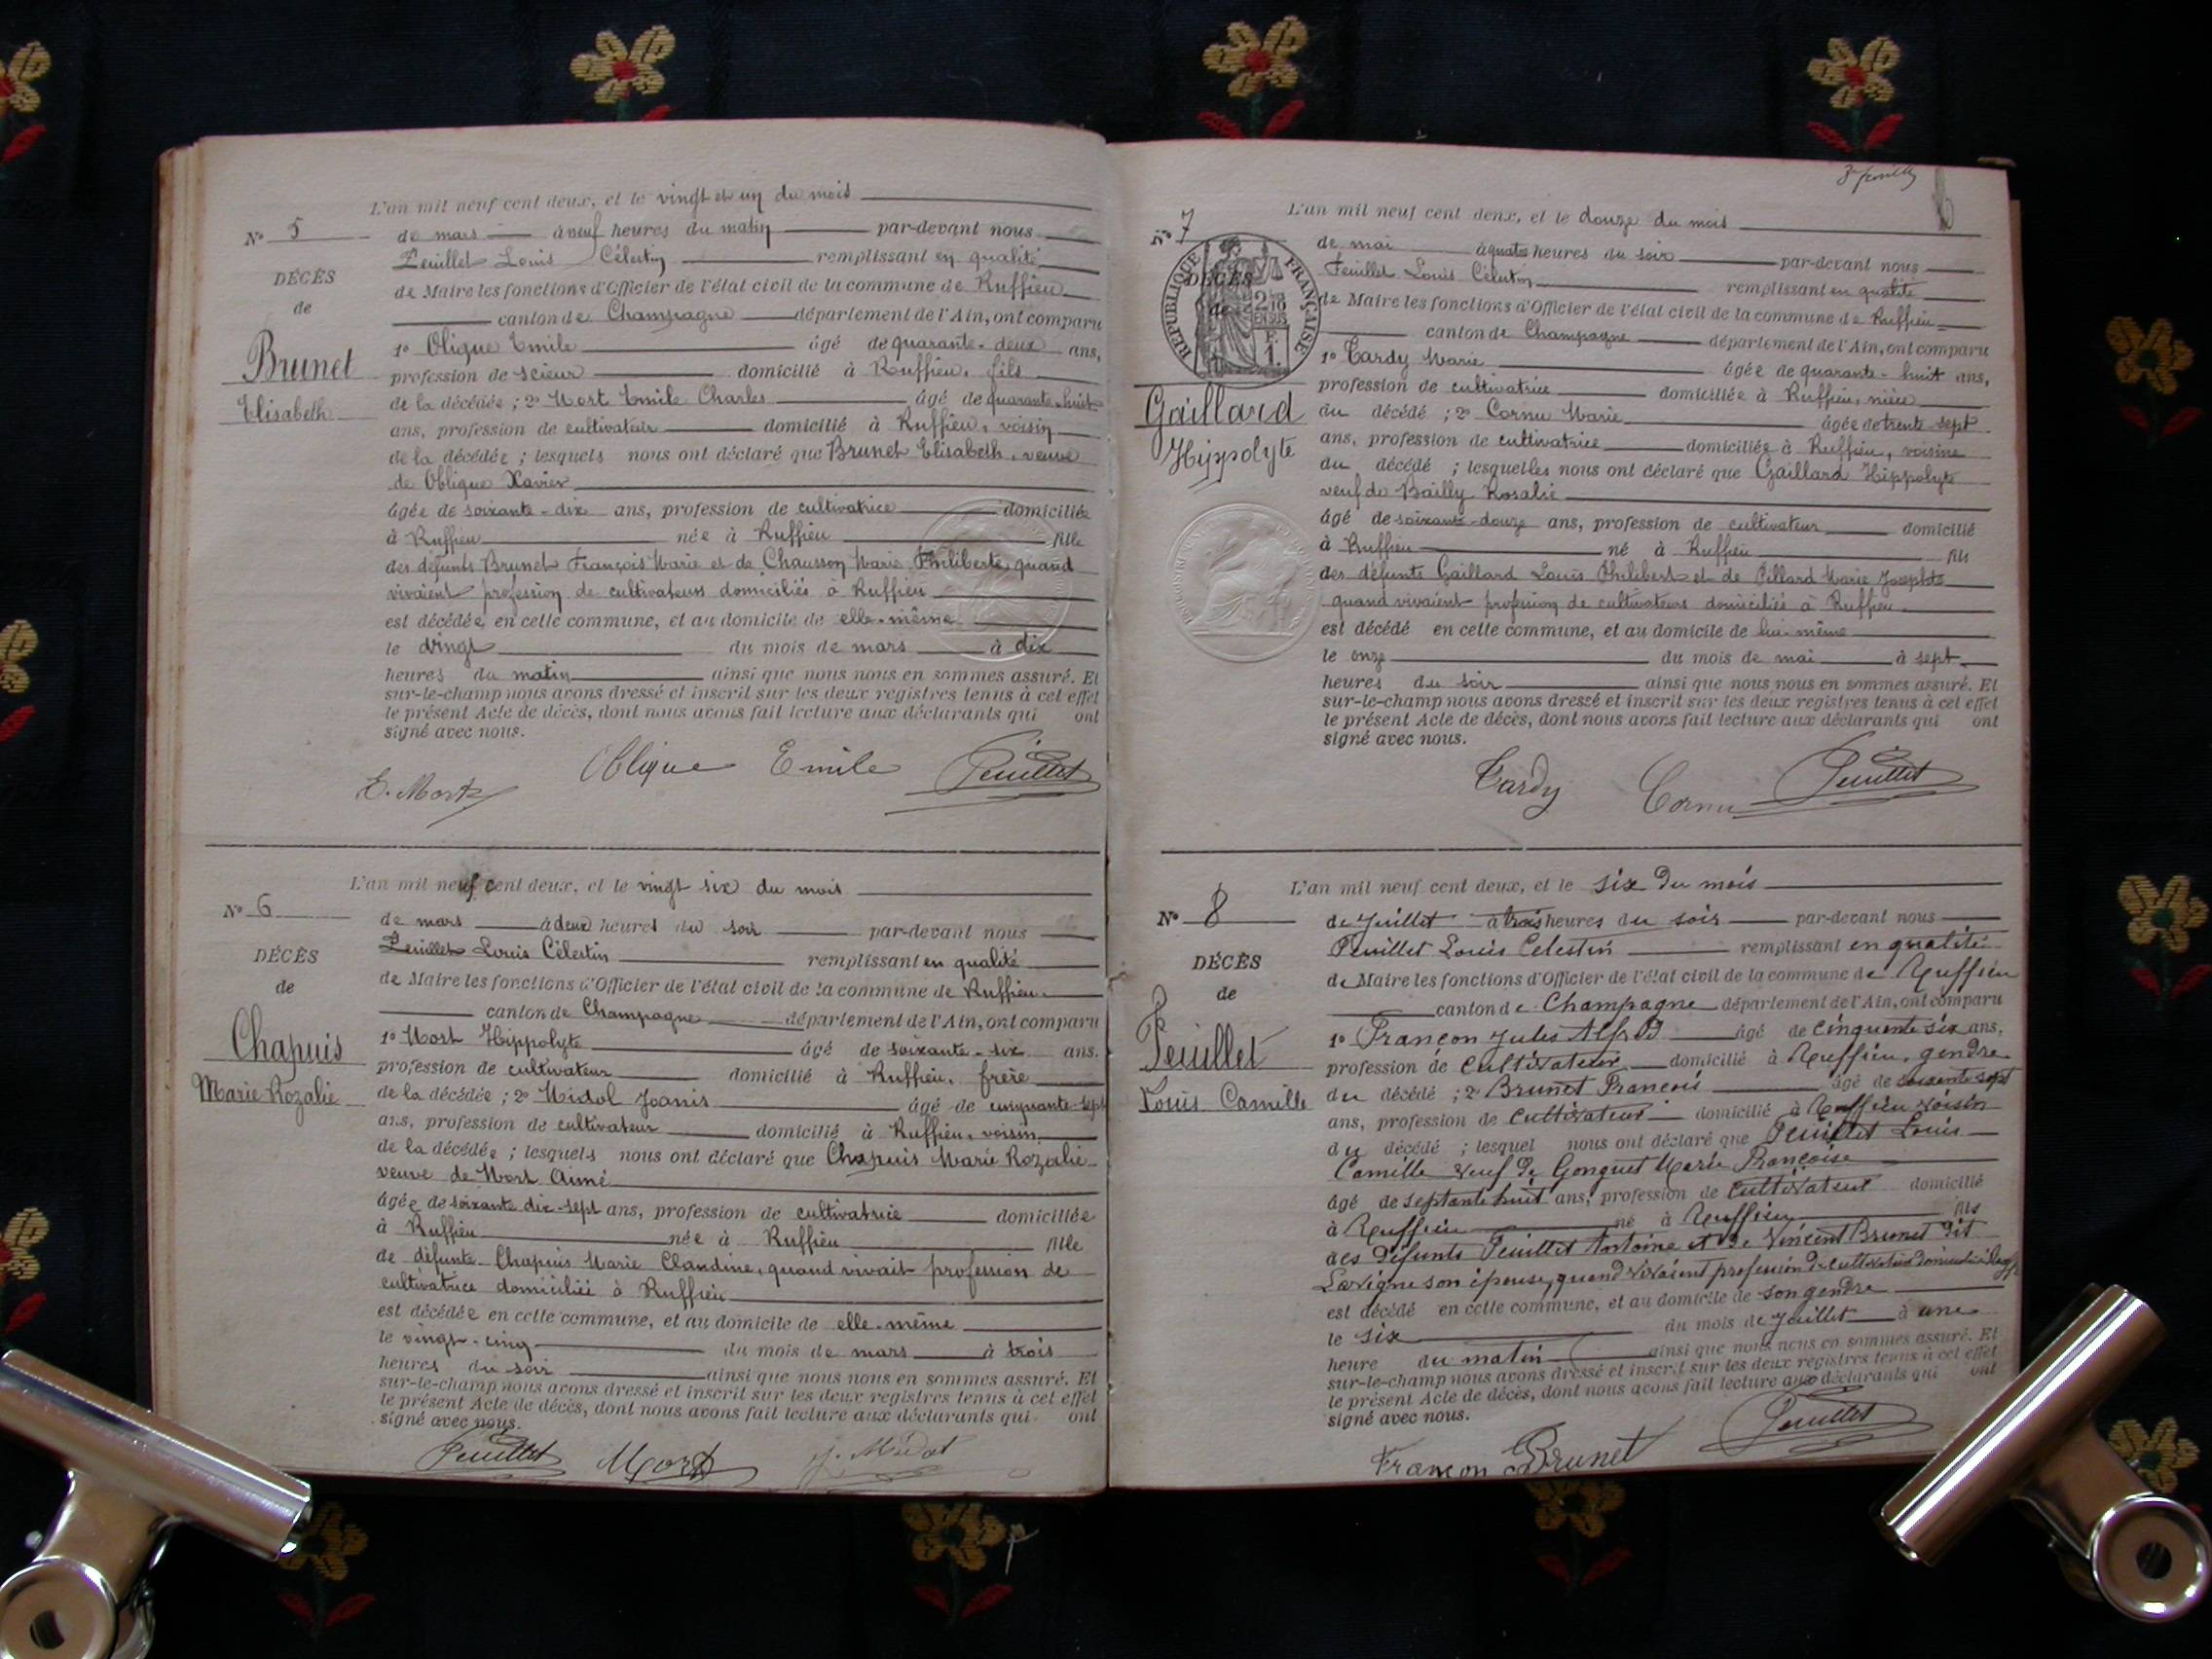 L'an mil neuf cent deux, et le vingt et un du mois
N° 5
de mars à neuf heures du matin par-devant nous
Feuillet Louis Célestin remplissant en qualité
DÉCÈS
de Maire les fonctions d'Officier de l'état civil de la commune de Ruffieu
de
canton de Champagne département de l'Ain, ont comparu
Brunet
Elisabeth
1° Oblique Emile âgé de quarante-deux ans,
profession de scieur domicilié à Ruffieu, fils
de la décédée ; 2° Mort Emile Charles âgé de quarante-huit
ans, profession de cultivateur domicilié à Ruffieu, voisin
de la décédée ; lesquels nous ont déclaré que Brunet Elisabeth, veuve
de Oblique Xavier
âgée de soixante-dix ans, profession de cultivatrice domiciliée
à Ruffieu née à Ruffieu fille
des défunts Brunet François Marie et de Chausson Marie Philiberte, quand
vivaient profession de cultivateurs domiciliés à Ruffieu
est décédée en cette commune, et au domicile de elle-même
le vingt du mois de mars à dix
heures du matin ainsi que nous nous en sommes assuré. Et
sur-le-champ nous avons dressé et inscrit sur les deux registres tenus à cet effet
le présent Acte de décès, dont nous avons fait lecture aux déclarants qui ont
signé avec nous.
E. Mort Oblique Emile Feuillet
L'an mil neuf cent deux, et le vingt six du mois
N° 6
de mars à deux heures du soir par-devant nous
Feuillet Louis Célestin remplissant en qualité
DÉCÈS
de Maire les fonctions d'Officier de l'état civil de la commune de Ruffieu
de
canton de Champagne département de l'Ain, ont comparu
Chapuis
Marie Rozalie
1° Mort Hippolyte âgé de soixante-six ans.
profession de cultivateur domicilié à Ruffieu, frère
de la décédée ; 2° Midol Joanis âgé de cinquante-sept
ans, profession de cultivateur domicilié à Ruffieu, voisin
de la décédée ; lesquels nous ont déclaré que Chapuis Marie Rozalie
veuve de Mort Aimé
âgée de soixante dix-sept ans, profession de cultivatrice domiciliée
à Ruffieu née à Ruffieu fille
de défunte Chapuis Marie Claudine, quand vivait profession de
cultivatrice domiciliée à Ruffieu
est décédée en cette commune, et au domicile de elle-même
le vingt-cinq du mois de mars à trois
heures du soir ainsi que nous nous en sommes assuré. Et
sur-le-champ nous avons dressé et inscrit sur les deux registres tenus à cet effet
le présent Acte de décès, dont nous avons fait lecture aux déclarants qui ont
signé avec nous.
Feuillet Mort J. Midol
L'an mil neuf cent deux, et le douze du mois
N° 7
de mai à quatre heures du soir par-devant nous
Feuillet Louis Célestin remplissant en qualité
DÉCÈS
RÉPUBLIQUE FRANÇAISE
de Maire les fonctions d'Officier de l'état civil de la commune de Ruffieu
de
canton de Champagne département de l'Ain, ont comparu
Gaillard
Hippolyte
1° Tardy Marie âgée de quarante-huit ans,
profession de cultivatrice domiciliée à Ruffieu, nièce
du décédé ; 2° Cornu Marie âgée de trente-sept
ans, profession de cultivatrice domiciliée à Ruffieu, voisine
du décédé ; lesquelles nous ont déclaré que Gaillard Hippolyte
veuf de Bailly Rosalie
âgé de soixante-douze ans, profession de cultivateur domicilié
à Ruffieu né à Ruffieu fils
des défunts Gaillard Louis Philibert et de Pillard Marie Josephte
quand vivaient profession de cultivateurs domiciliés à Ruffieu
est décédé en cette commune, et au domicile de lui-même
le onze du mois de mai à sept
heures du soir ainsi que nous nous en sommes assuré. Et
sur-le-champ nous avons dressé et inscrit sur les deux registres tenus à cet effet
le présent Acte de décès, dont nous avons fait lecture aux déclarants qui ont
signé avec nous.
Tardy Cornu Feuillet
L'an mil neuf cent deux, et le six du mois
N° 8
de Juillet à trois heures du soir par-devant nous
Feuillet Louis Celestin remplissant en qualité
DÉCÈS
de Maire les fonctions d'Officier de l'état civil de la commune de Ruffieu
de
canton de Champagne département de l'Ain, ont comparu
Feuillet
Louis Camille
1° Françon Jules Alfred âgé de cinquante six ans,
profession de cultivateur domicilié à Ruffieu, gendre
du décédé ; 2° Brunet François âgé de soixante sept
ans, profession de cultivateur domicilié à Ruffieu voisin
du décédé ; lesquel nous ont déclaré que Feuillet Louis
Camille veuf de Gonguet Marie Françoise
âgé de septante huit ans, profession de cultivateur domicilié
à Ruffieu né à Ruffieu fils
des défunts Feuillet Antoine et de Vincent Brunet dit
Lavigne son épouse, quand vivaient profession de cultivateurs
est décédé en cette commune, et au domicile de son gendre
le six du mois de Juillet à une
heure du matin ainsi que nous nous en sommes assuré. Et
sur-le-champ nous avons dressé et inscrit sur les deux registres tenus à cet effet
le présent Acte de décès, dont nous avons fait lecture aux déclarants qui ont
signé avec nous.
Françon Brunet Feuillet